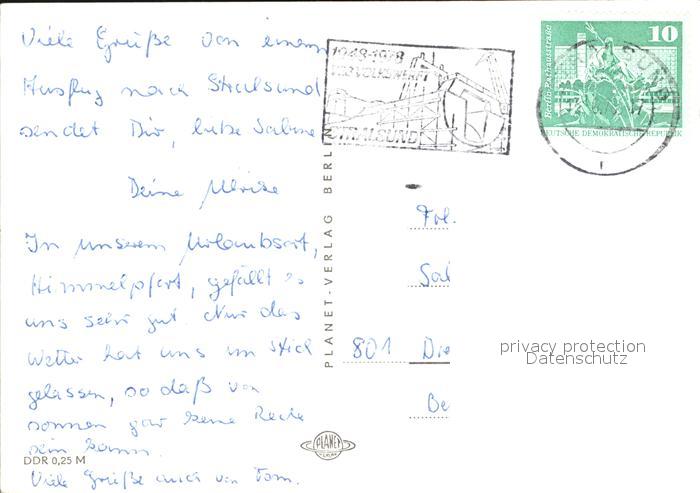 Viele Grüße von einem
Ausflug nach Stralsund
sendet Dir, liebe Sabine
Deine Ulrike
In unserem Urlaubsort,
Himmelpfort, gefällt es
uns sehr gut. Nur das
Wetter hat uns im Stich
gelassen, so daß von
sonnen gar keine Rede
sein kann.
Viele Grüße auch von Tom.
DDR 0,25 M
PLANET-VERLAG BERLIN
PLANET
1948-1978
VEB VOLKSWERFT
STRALSUND
10
Berlin-Rathausstraße
DEUTSCHE DEMOKRATISCHE REPUBLIK
STRALSUND
Frl.
801
privacy protection
Datenschutz